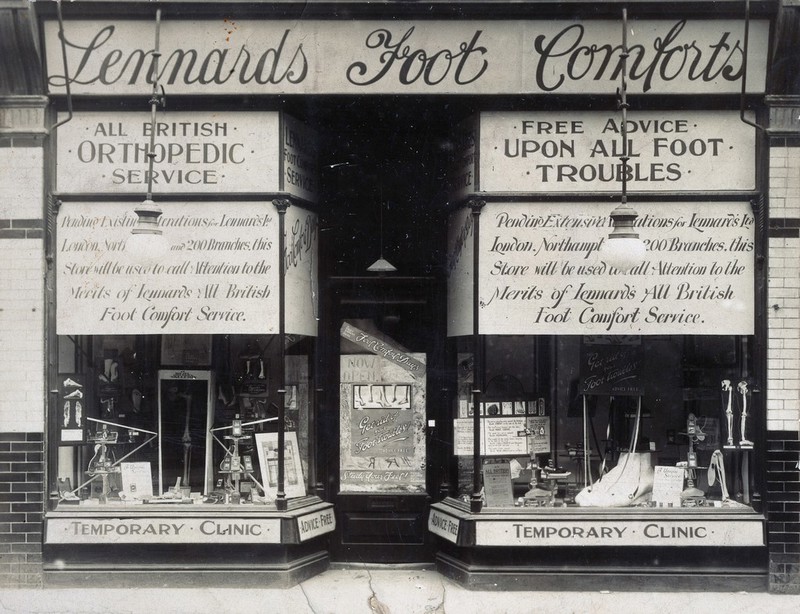 Lennards Foot Comforts
ALL BRITISH
ORTHOPEDIC
SERVICE
FREE ADVICE
UPON ALL FOOT
TROUBLES
Pending Extensive Alterations for Lennards Ltd
London, North and 200 Branches, this
Store will be used to call Attention to the
Merits of Lennards All British
Foot Comfort Service.
Pending Extensive for Lennards Ltd
London, Northampt 200 Branches, this
Store will be used to call Attention to the
Merits of Lennards All British
Foot Comfort Service.
Foot Comfort
NOW
OPEN
Get rid
Foot
Get rid
Foot
TEMPORARY CLINIC
ADVICE FREE
ADVICE FREE
TEMPORARY CLINIC